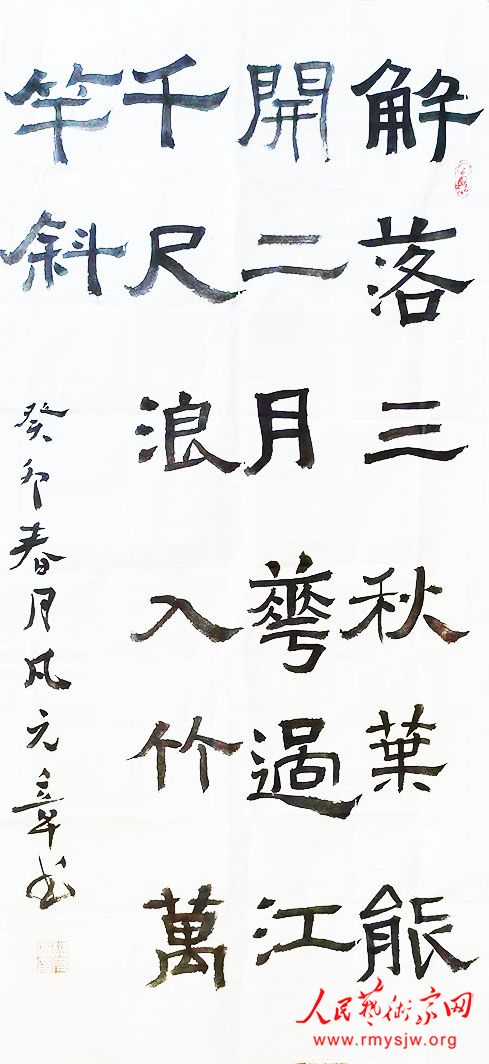 解落三秋葉能
開二月華過江
千尺浪入竹萬
竿斜
癸卯春月風元章书
人民藝術家网
www.rmysjw.org